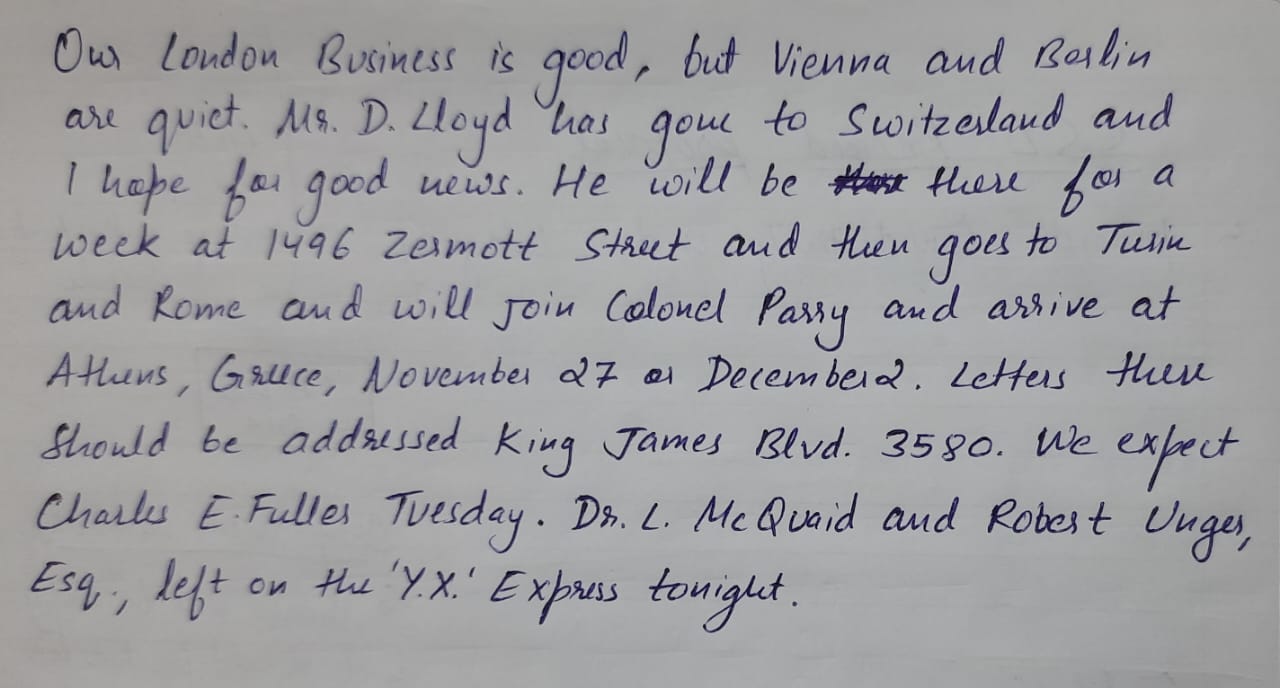 Our London Business is good, but Vienna and Berlin
are quiet. Mr. D. Lloyd has gone to Switzerland and
I hope for good news. He will be there for a
week at 1496 Zermott Street and then goes to Turin
and Rome and will join Colonel Parry and arrive at
Athens, Greece, November 27 or December 2. Letters there
Should be addressed King James Blvd. 3580. We expect
Charles E. Fuller Tuesday. Dr. L. McQuaid and Robert Unger,
Esq., left on the 'Y.X.' Express tonight.